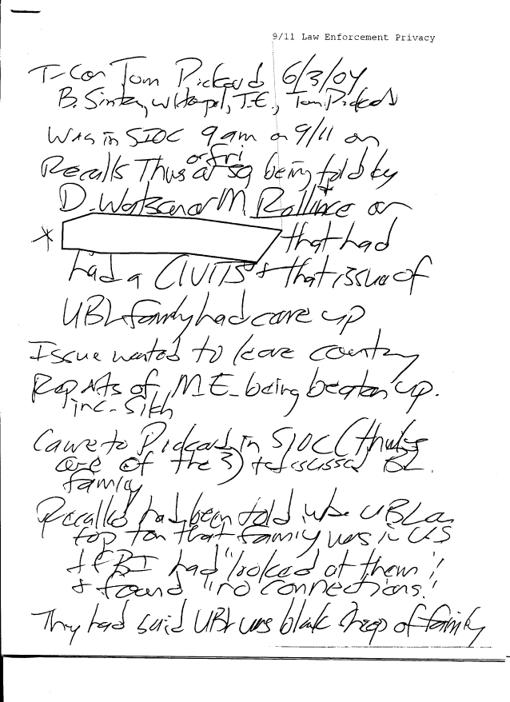 9/11 Law Enforcement Privacy
T-Con Tom Pickard 6/3/04
B. Tom Pickard
Was in SIOC 9 am on 9/11 on
or Fri
Recalls Thurs or being told by
D. Watson or M. Rollince or
* that had
had a CIVITS + that issue of
UBL family had come up
Issue wanted to leave country
Reports of M.E. being beaten up.
inc. Sikh
Came to Pickard in SIOC (thinks
one of the 3) + discussed BL
family
Recalled had been told when UBL on
top ten that family was in US
+ FBI had "looked at them"
+ found "no connections."
They had said UBL was black sheep of family